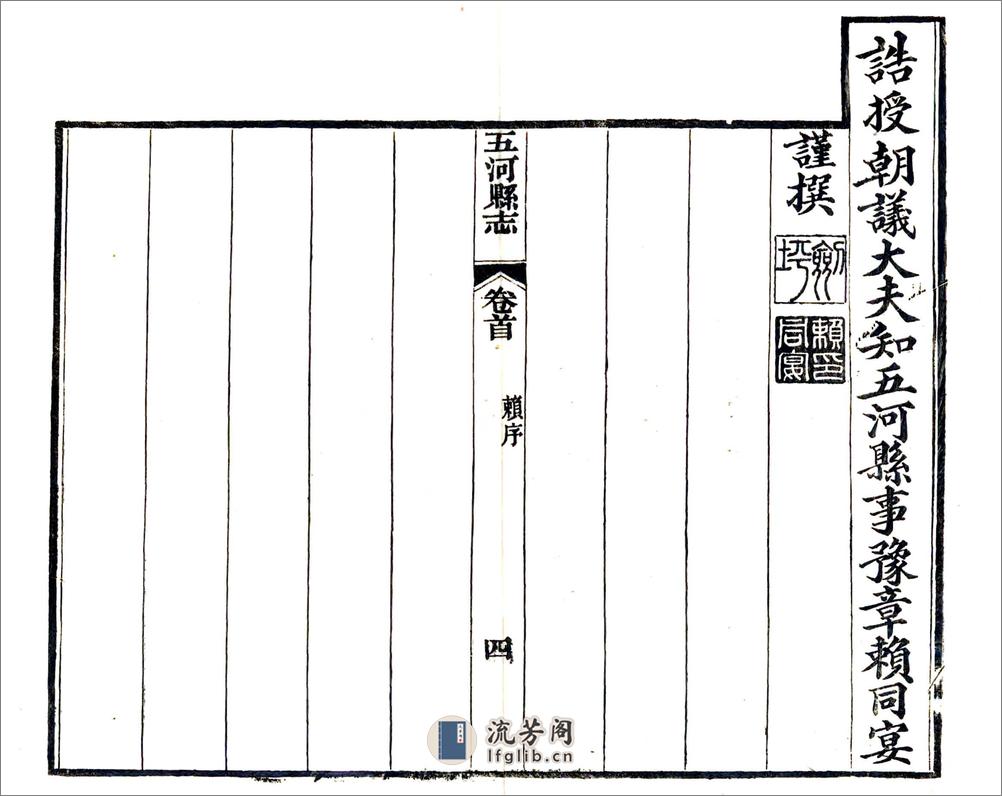 誥授朝議大夫知五河縣事豫章賴同宴
謹撰
劍坪
賴同宴印
五河縣志
卷首
賴序
四
流芳阁
lfglib.cn